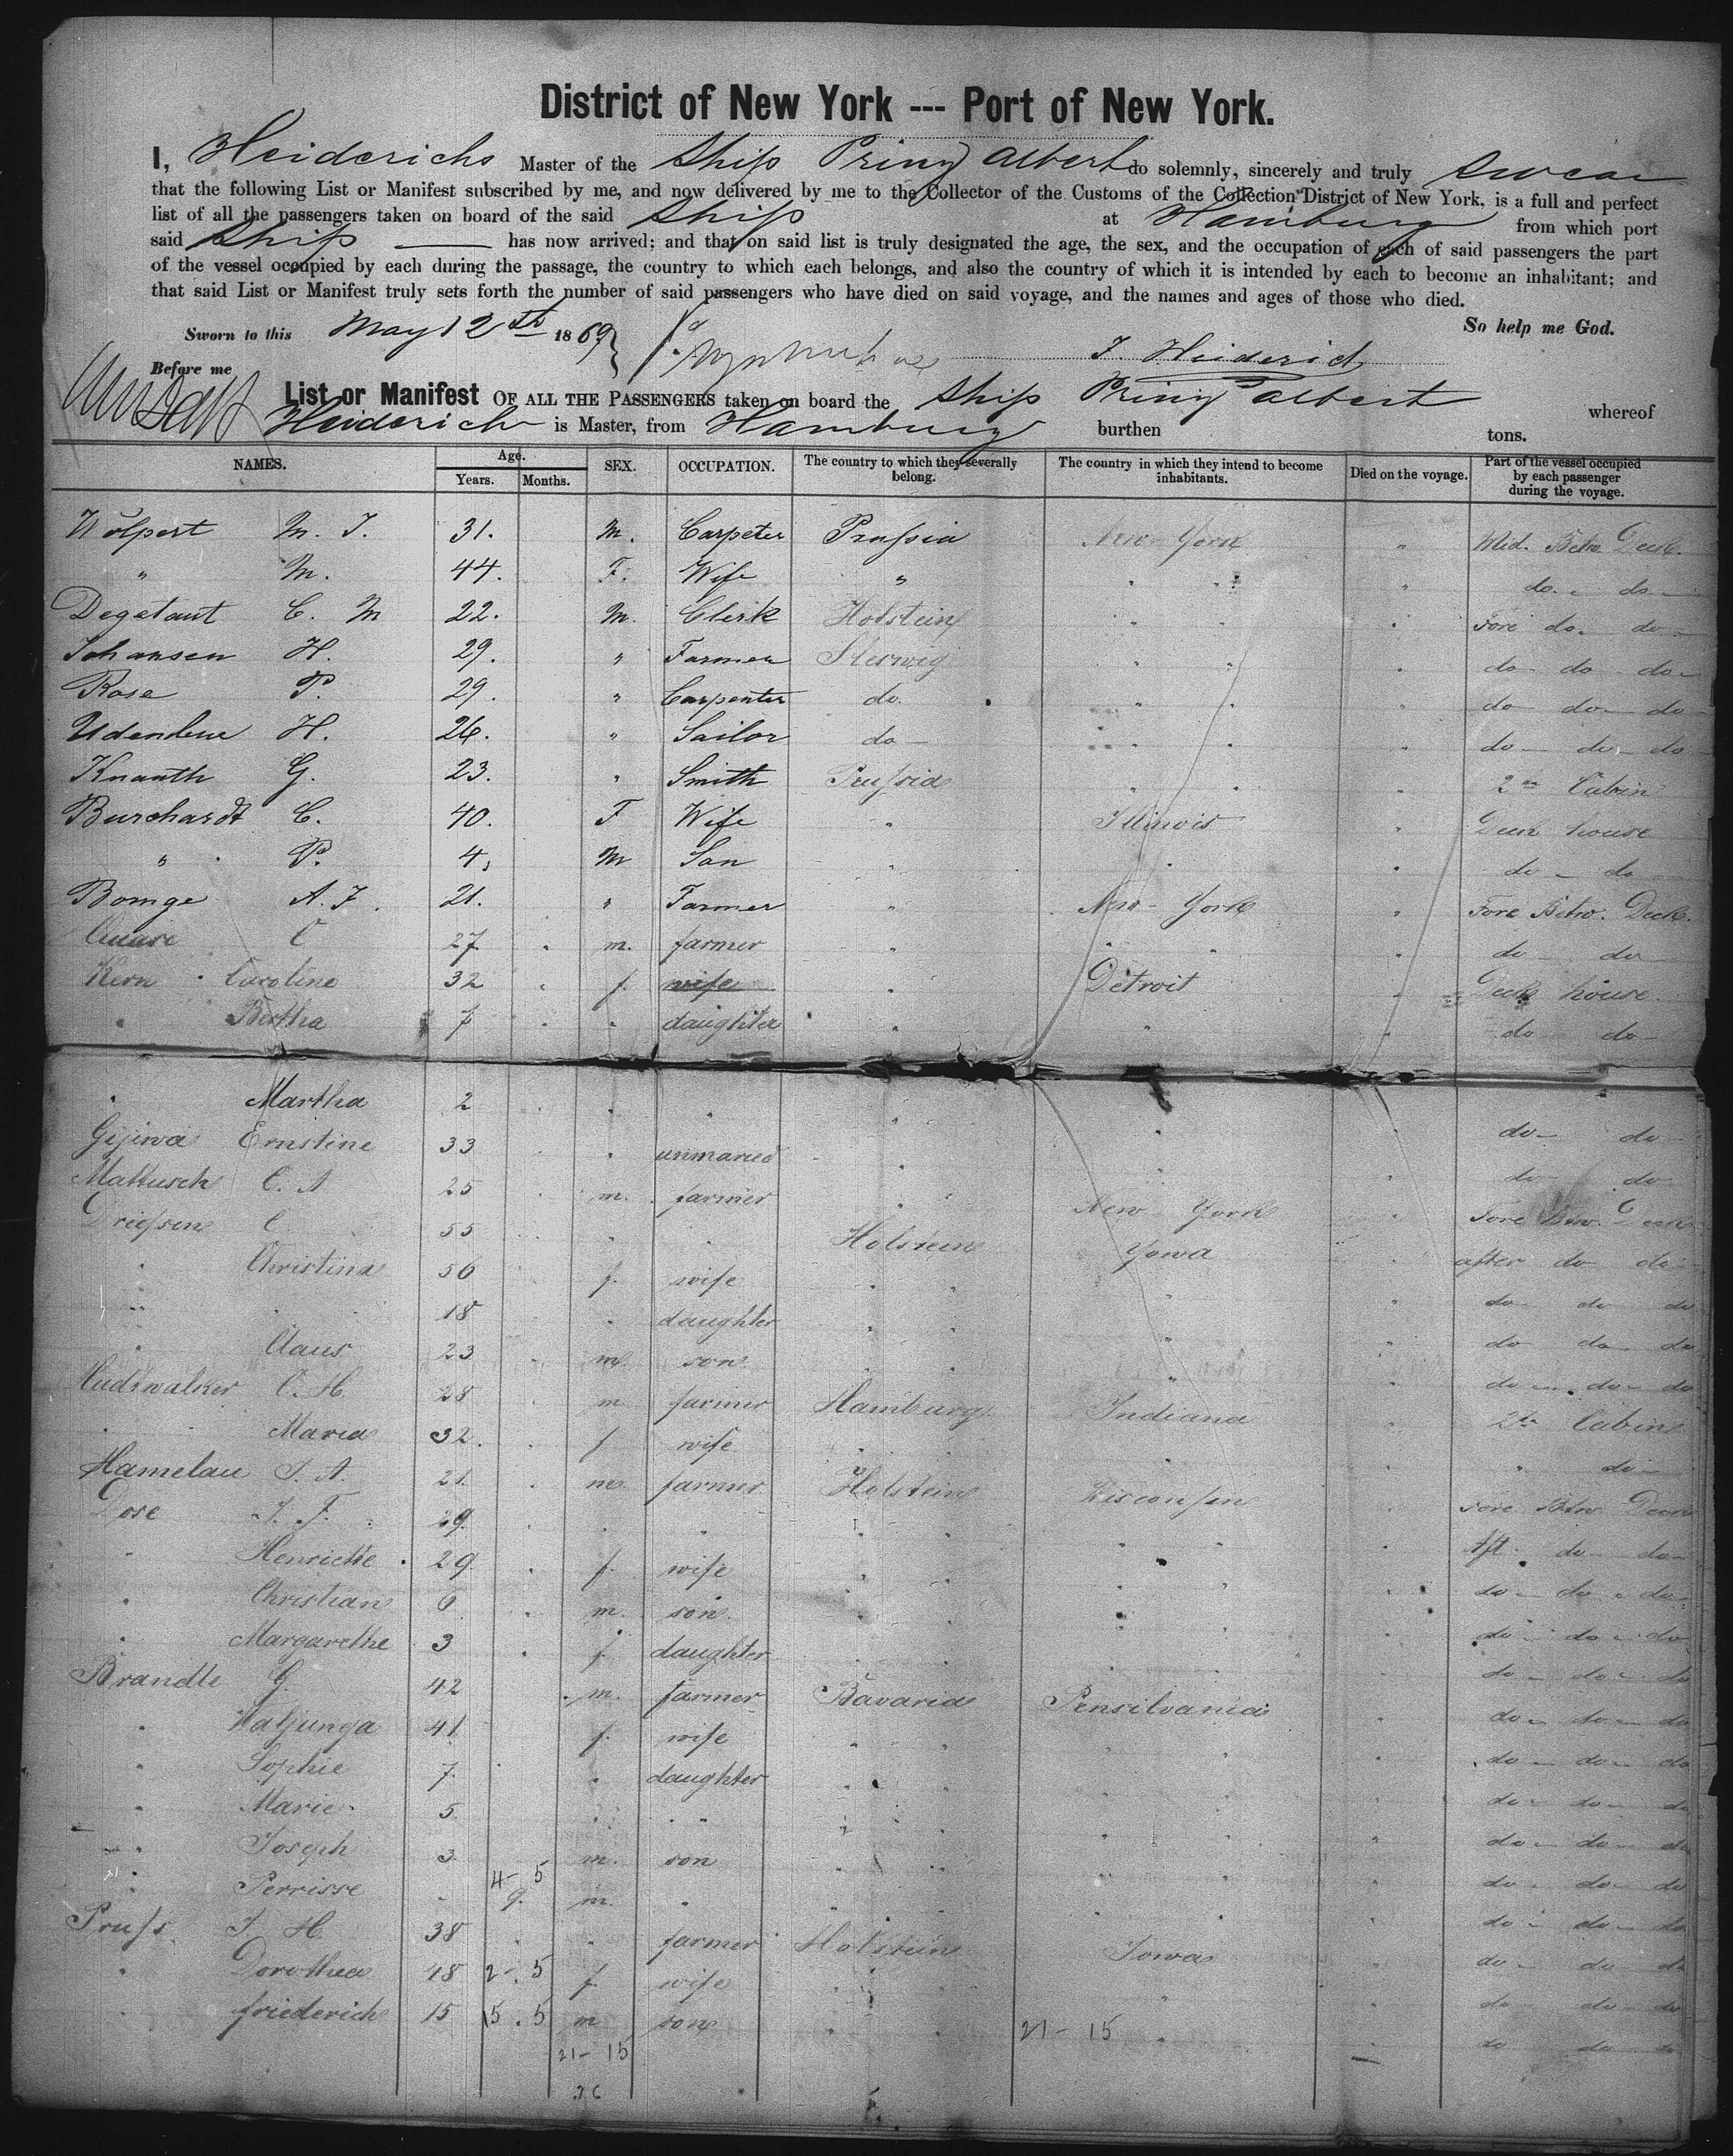 District of New York --- Port of New York.
I, Heiderichs Master of the Ship Prinz Albert do solemnly, sincerely and truly swear
that the following List or Manifest subscribed by me, and now delivered by me to the Collector of the Customs of the Collection District of New York, is a full and perfect
list of all the passengers taken on board of the said Ship at Hamburg from which port
said Ship — has now arrived: and that on said list is truly designated the age, the sex, and the occupation of each of said passengers the part
of the vessel occupied by each during the passage, the country to which each belongs, and also the country of which it is intended by each to become an inhabitant; and
that said List or Manifest truly sets forth the number of said passengers who have died on said voyage, and the names and ages of those who died.
So help me God.
Sworn to this May 12th 1869
Before me
J. Heiderich
List or Manifest OF ALL THE PASSENGERS taken on board the Ship Prinz Albert whereof
Heiderich is Master, from Hamburg burthen tons.
NAMES. Age. Years. Months. SEX. OCCUPATION. The country to which they severally belong. The country in which they intend to become inhabitants. Died on the voyage. Part of the vessel occupied by each passenger during the voyage.
Wölpert M. J. 31. M. Carpeter Prussia New York " Mid. Betw. Deck.
" M. 44. F. Wife " " " " do. do.
Degetaut C. M 22. M. Clerk Holstein " " " Fore do. do
Johansen H. 29. " Farmer Sleswig " " " do do do
Rose P. 29. " Carpenter do. " " " do do do
H. 26. " Sailor do " " " do do do
Knauth G. 23. " Smith Prussia " " " 2nd Cabin
Burchardt C. 40. F Wife " Illinois Deck house
" P. 4, M Son " " " do do
Bomge A. J. 21. " Farmer " New York " Fore Betw. Deck.
C 27 " m. farmer " " " " do do
Kern Caroline 32 " f. wife " Detroit " Deck house.
" Bertha 7 " " daughter " " " do do
" Martha 2 " " " " " " do do
Ernstine 33 " " unmaried " " " do do
Mattusch C. A 25 " m. farmer " " New York " Fore Betw. Deck
Driessen C. 55 " " " Holstein Yowa " after do do
" Christina 56 " f. wife " " " " do do do
" " 18 " daughter " " " " do do do
" Claus 23 " m. son " " " " do do do
Hudtwalker C. H. 28 " m farmer Hamburg Indiana " 2d Cabin
" Maria 32. " f wife " " " " do
Hamelau J. A. 21. m farmer Holstein Wisconsin " Fore Betw. Deck
Dose J. F. 29. " " " " " " " Aft. do do
" Henriette 29 " f. wife " " " " " do do do
" Christian 6 " m. son. " " " " " do do do
" Margarethe 3 " f. daughter " " " do do do
Brandle G. 42 m. farmer Bavaria Pensilvania " do do do
" 41 f. wife " " " " " do do do
" Sophie 7. " " daughter " " " " " do do do
" Marie 5. " " " " " " " " do do do
" Joseph 3 m. son " " " " " do do do
4- 5
" Perrisse - 9. m. " " " " " " do do do
Pruss J. H. 38 " " farmer Holstein Iowa " do do do
" Dorothea 48 2- 5 f. wife " " " do do do
" friederich 15 15. 5 m son " " 21 - 15 " do do do
21 - 15
36